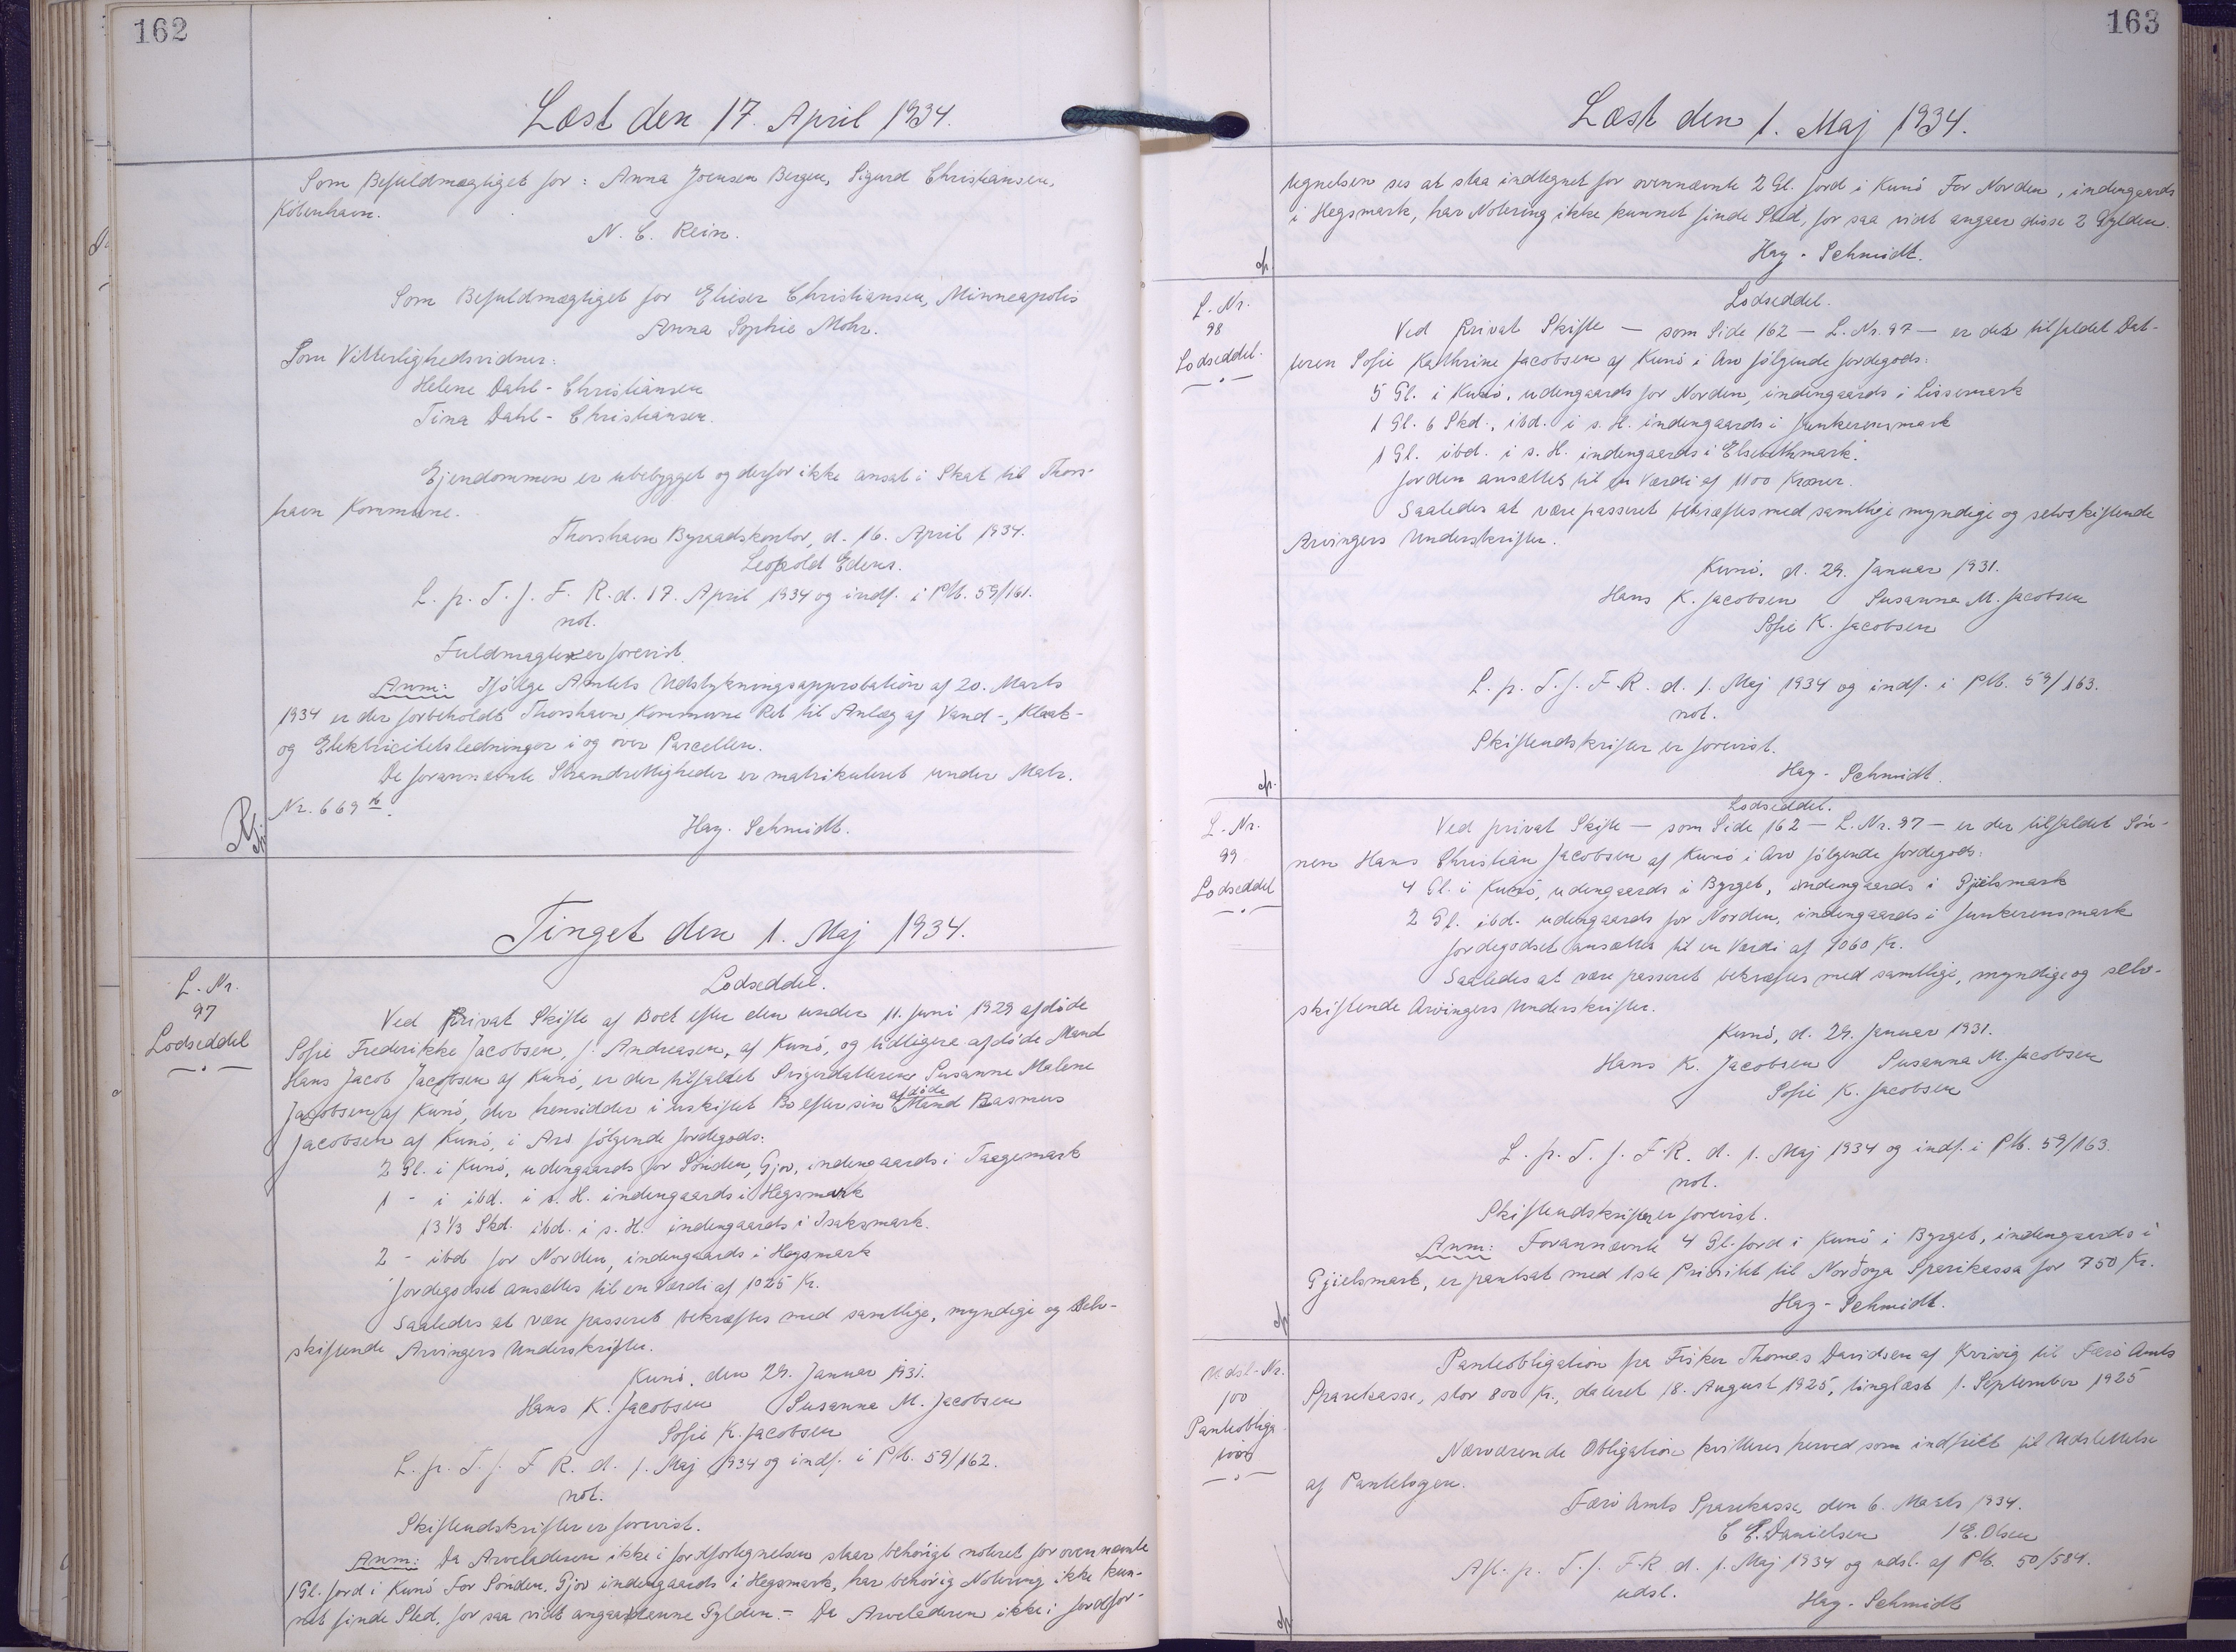 162
Læst den 17. April 1934.
Som Befuldmægtiget for: Anna Joensen Bergen, Sigurd Christiansen,
København.
N. C. Rein.
Som Befuldmægtiget for Elieser Christiansen, Minneapolis
Anna Sophie Mohr.
Som Vitterlighedsvidner:
Helene Dahl-Christiansen
Tina Dahl-Christiansen.
Ejendommen er ubebygget og derfor ikke ansat i Skat til Thors-
havn Kommune.
Thorshavn Byraadskontor, d. 16. April 1934.
Leopold
L. p. T. f. F. R. d. 17. April 1934 og indf. i Pb. 59/161.
not.
Fuldmagten er forevist.
Anm: Ifølge Amtets Udstykningsapprobation af 20. Marts
1934 er der forbeholdt Thorshavn Kommune Ret til Anlæg af Vand-, Kloak-
og Elektricitetsledninger i og over Parcellen.
De forannævnte Strandrettigheder er matrikuleret under Matr.
Nr. 669
Hay-Schmidt.
Tinget den 1. Maj 1934.
L. Nr.
97
Lodseddel
Lodseddel.
Ved Privat Skifte af Boet efter den under 11. Juni 1929 afdøde
Sofie Frederikke Jacobsen, f. Andreasen, af Kunø, og tidligere afdøde Mand
Hans Jacob Jacobsen af Kunø, er der tilfaldet Svigerdatteren Susanne Malene
Jacobsen af Kunø, der hensidder i uskiftet Bo efter sin afdøde Mand Rasmus
Jacobsen af Kunø, i Arv følgende Jordegods:
2 Gl. i Kunø, udengaards for Sønden, Gjov, indengaards i Taagemark
1 - i ibd. i s. H. indengaards i Hegsmark
13 1/3 Skd. ibd. i s. H. indengaards i Isaksmark.
2 - ibd for Norden, indengaards i Hegsmark
Jordegodset ansættes til en Værdi af 1025 Kr.
Saaledes at være passeret bekræftes med samtlige, myndige og selv-
skiftende Arvingers Underskrifter.
Kunø, den 29. Januar 1931.
Hans K. Jacobsen Susanna M. Jacobsen
Sofie K. Jacobsen
L. p. T. f. F R. d. 1. Maj 1934 og indf. i Pb. 59/162.
not.
Skiftendskrifter er forevist.
Anm: Da Arveladeren ikke i Jordfortegnelsen staar behørigt noteret for ovennævnte
1 Gl. Jord i Kunø For Sønden, Gjov indengaards i Hegsmark, har behørig Notering ikke kun-
net finde Sted, for saa vidt angaar denne Gylden. - Da Arveladeren ikke i Jordfor-
163
Læst den 1. Maj 1934.
tegnelsen ses at staa indtegnet for ovennævnte 2 Gl. Jord i Kunø For Norden, indengaards
i Hegsmark, har Notering ikke kunnet finde Sted, for saa vidt angaar disse 2 Gylden.
Hay-Schmidt.
L. Nr.
98
Lodseddel.
Lodseddel.
Ved privat Skifte - som Side 162 - L. Nr. 97 - er der tilfaldet Dat-
teren Sofie Kathrine Jacobsen af Kunø i Arv følgende Jordegods:
5 Gl. i Kunø, udengaards for Norden, indengaards i Lissemark
1 Gl. 6 Skd., ibd. i s. H. indengaards i Junkerensmark
1 Gl. ibd. i s. H. indengaards i Elsebethmark.
Jorden ansættes til en Værdi af 1100 Kroner.
Saaledes at være passeret bekræftes med samtlige myndige og selvskiftende
Arvingers Underskrifter.
Kunø, d. 29. Januar 1931.
Hans K. Jacobsen Susanna M. Jacobsen
Sofie K. Jacobsen
L. p. T. f. F. R. d. 1. Maj 1934 og indf. i Pb. 59/163.
not.
Skiftendskrifter er forevist.
Hay-Schmidt.
L. Nr.
99
Lodseddel
Lodseddel.
Ved privat Skifte - som Side 162 - L. Nr. 97 - er der tilfaldet Søn-
nen Hans Christian Jacobsen af Kunø i Arv følgende Jordegods:
4 Gl. i Kunø, udengaards i Byrget, indengaards i Gjielsmark
2 Gl. ibd. udengaards for Norden, indengaards i Junkerensmark
Jordegodset ansættes til en Værdi af 1060 Kr.
Saaledes at være passeret bekræftes med samtlige, myndige og selv-
skiftende Arvingers Underskrifter.
Kunø, d. 29. Januar 1931.
Hans K. Jacobsen Susanna M. Jacobsen
Sofie K. Jacobsen
L. p. T. f. F. R. d. 1. Maj 1934 og indf. i Pb. 59/163.
not.
Skiftendskrifter er forevist.
Anm: Forannævnte 4 Gl. Jord i Kunø i Byrget, indengaards i
Gjielsmark, er pantsat med 1ste Prioritet til Norðoya Sparikassa for 750 Kr.
Hay-Schmidt.
Udsl.-Nr.
100
Panteobliga-
tion
Panteobligation fra Fisker Thomas Davidsen af Kvivig til Færø Amts
Sparekasse, stor 800 Kr., dateret 18. August 1925, tinglæst 1. September 1925
Nærværende Obligation kvitteres herved som indfriet til Udslettelse
af Pantebogen.
Færø Amts Sparekasse, den 6. Marts 1934.
C E. Danielsen / E. Olsen
Afl. p. T. f. F R d. 1. Maj 1934 og udsl. af Pb. 50/584.
udsl.
Hay-Schmidt